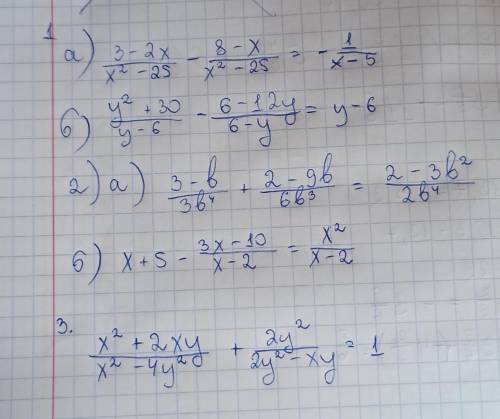 1
а) (3 - 2x)/(x² - 25) - (8 - x)/(x² - 25) = - 1/(x - 5)
б) (y² + 30)/(y - 6) - (6 - 12y)/(6 - y) = y - 6
2) а) (3 - b)/(3b⁴) + (2 - 9b)/(6b³) = (2 - 3b²)/(2b⁴)
б) x + 5 - (3x - 10)/(x - 2) = x²/(x - 2)
3. (x² + 2xy)/(x² - 4y²) + 2y²/(2y² - xy) = 1